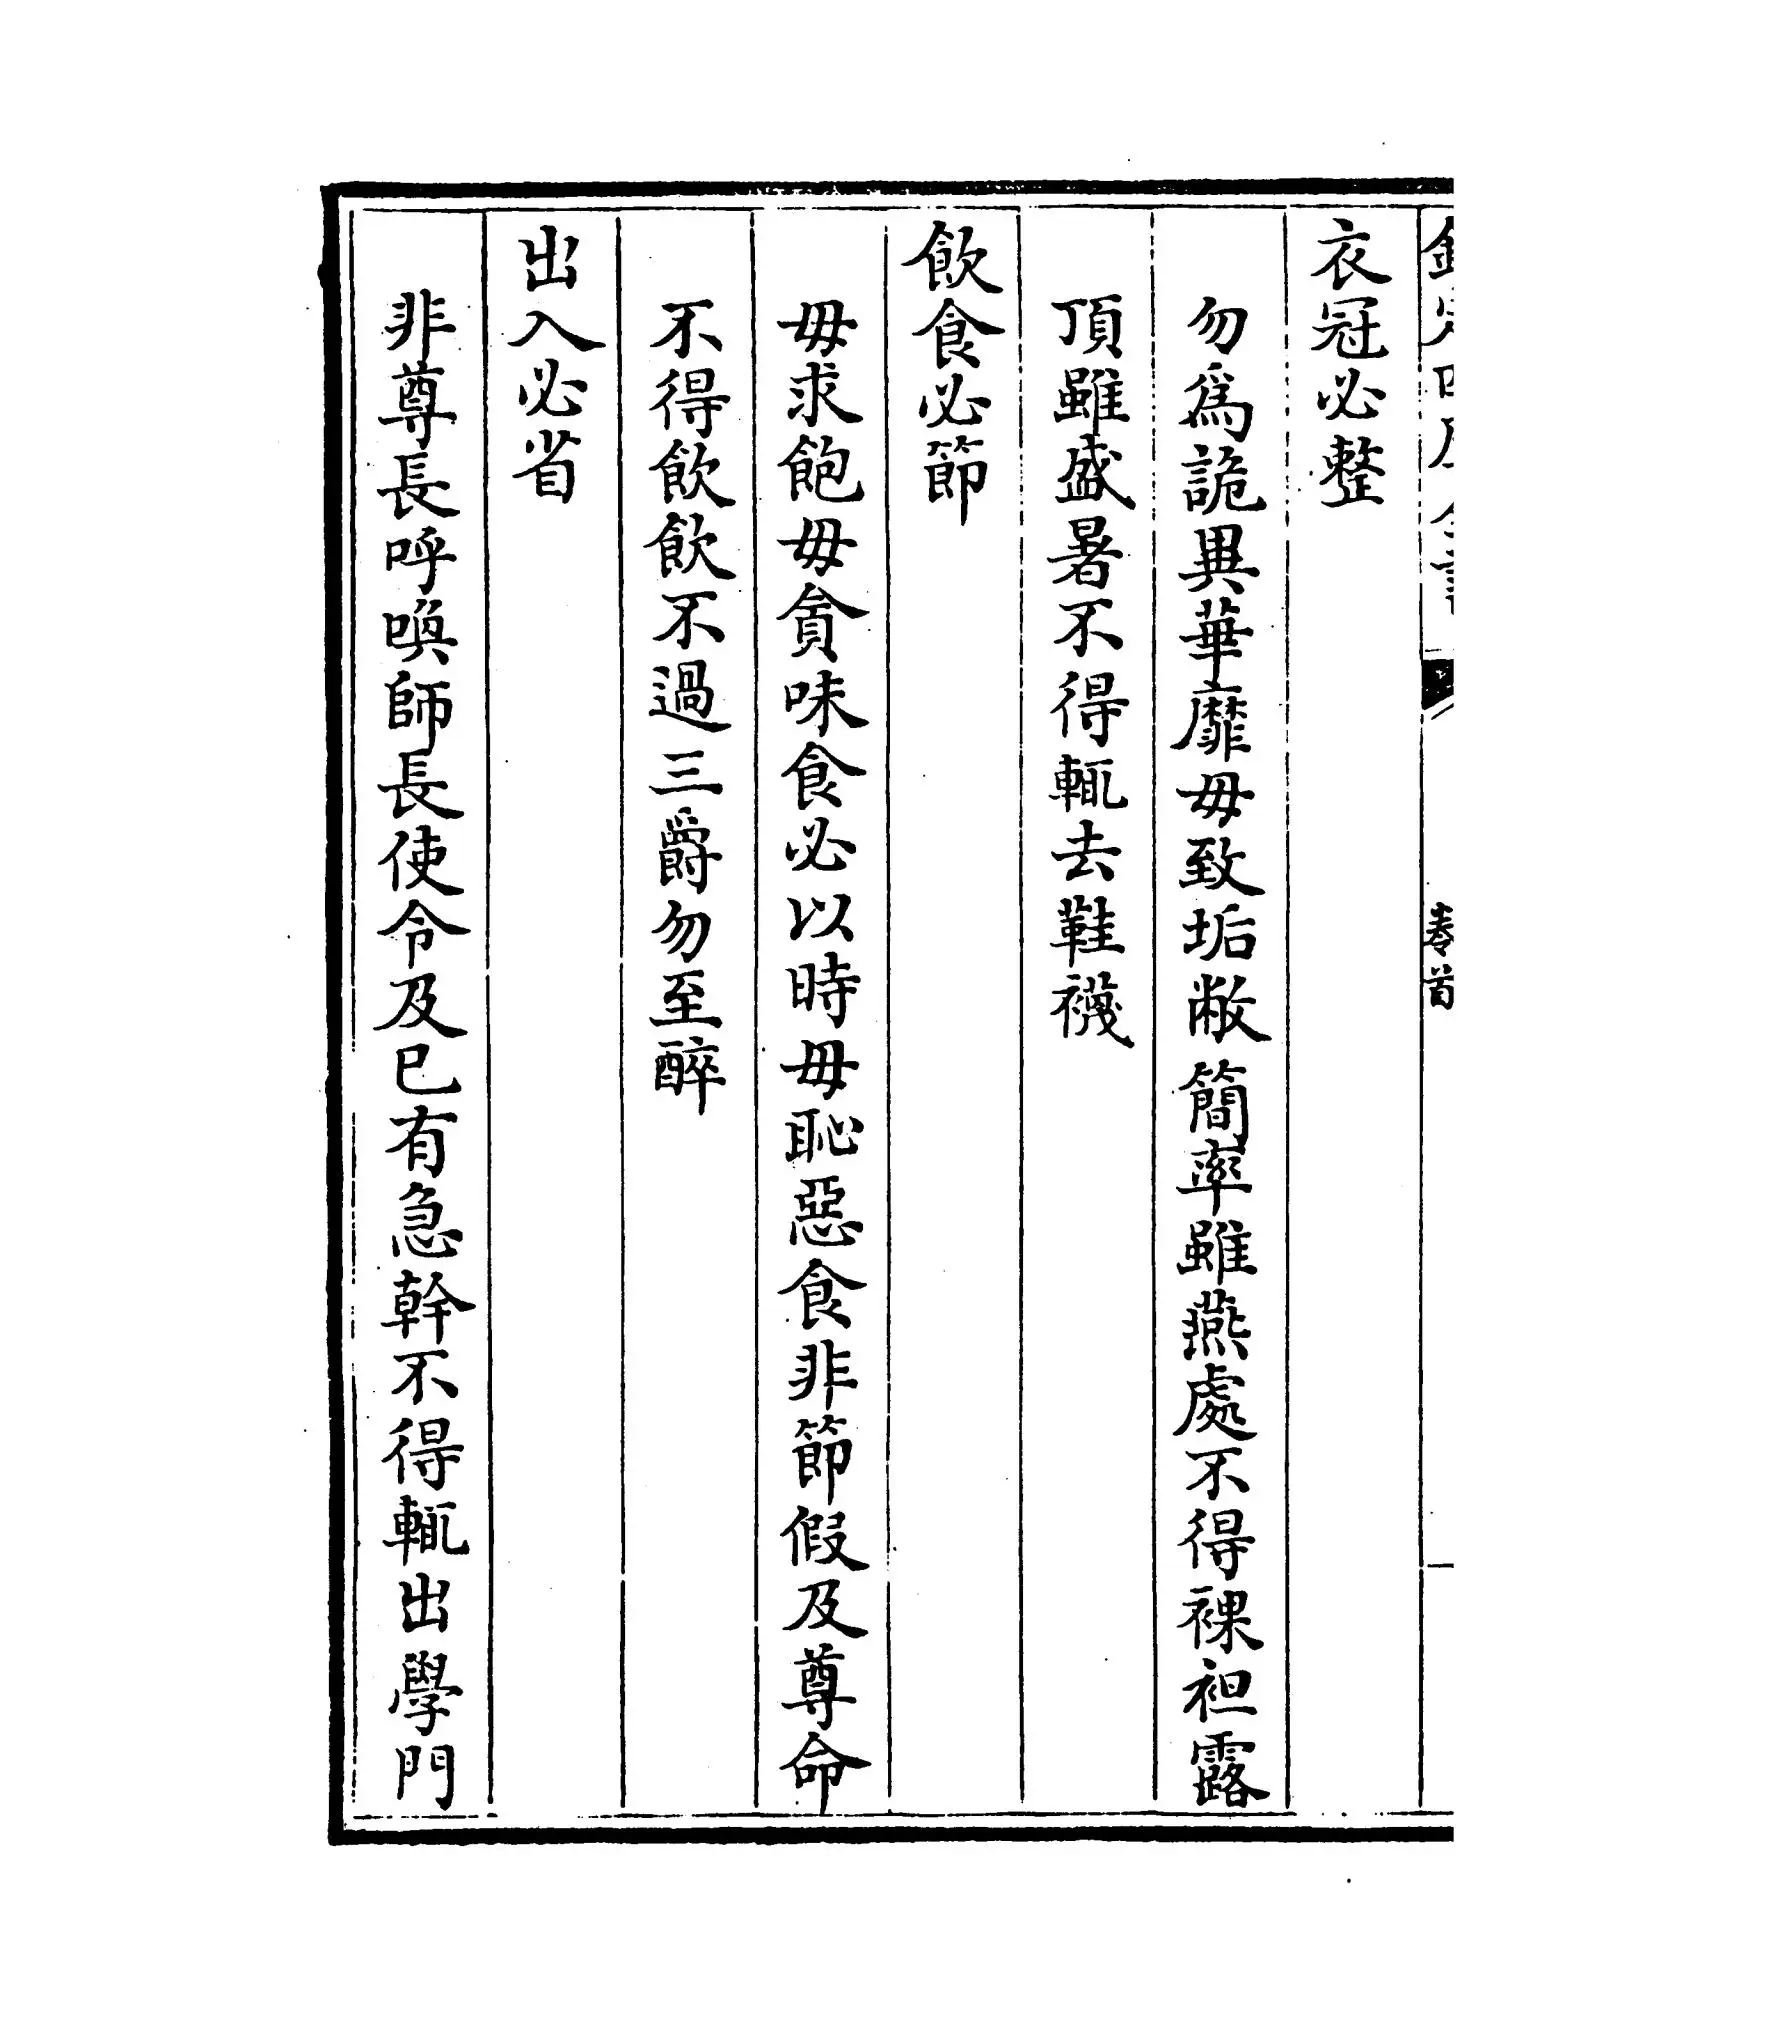 欽定四庫全書 卷首
衣冠必整
勿為詭異華靡毋致垢敝簡率雖燕處不得裸袒露
頂雖盛暑不得輒去鞋襪
飲食必節
毋求飽毋貪味食必以時毋恥惡食非節假及尊命
不得飲飲不過三爵勿至醉
出入必省
非尊長呼喚師長使令及已有急幹不得輒出學門